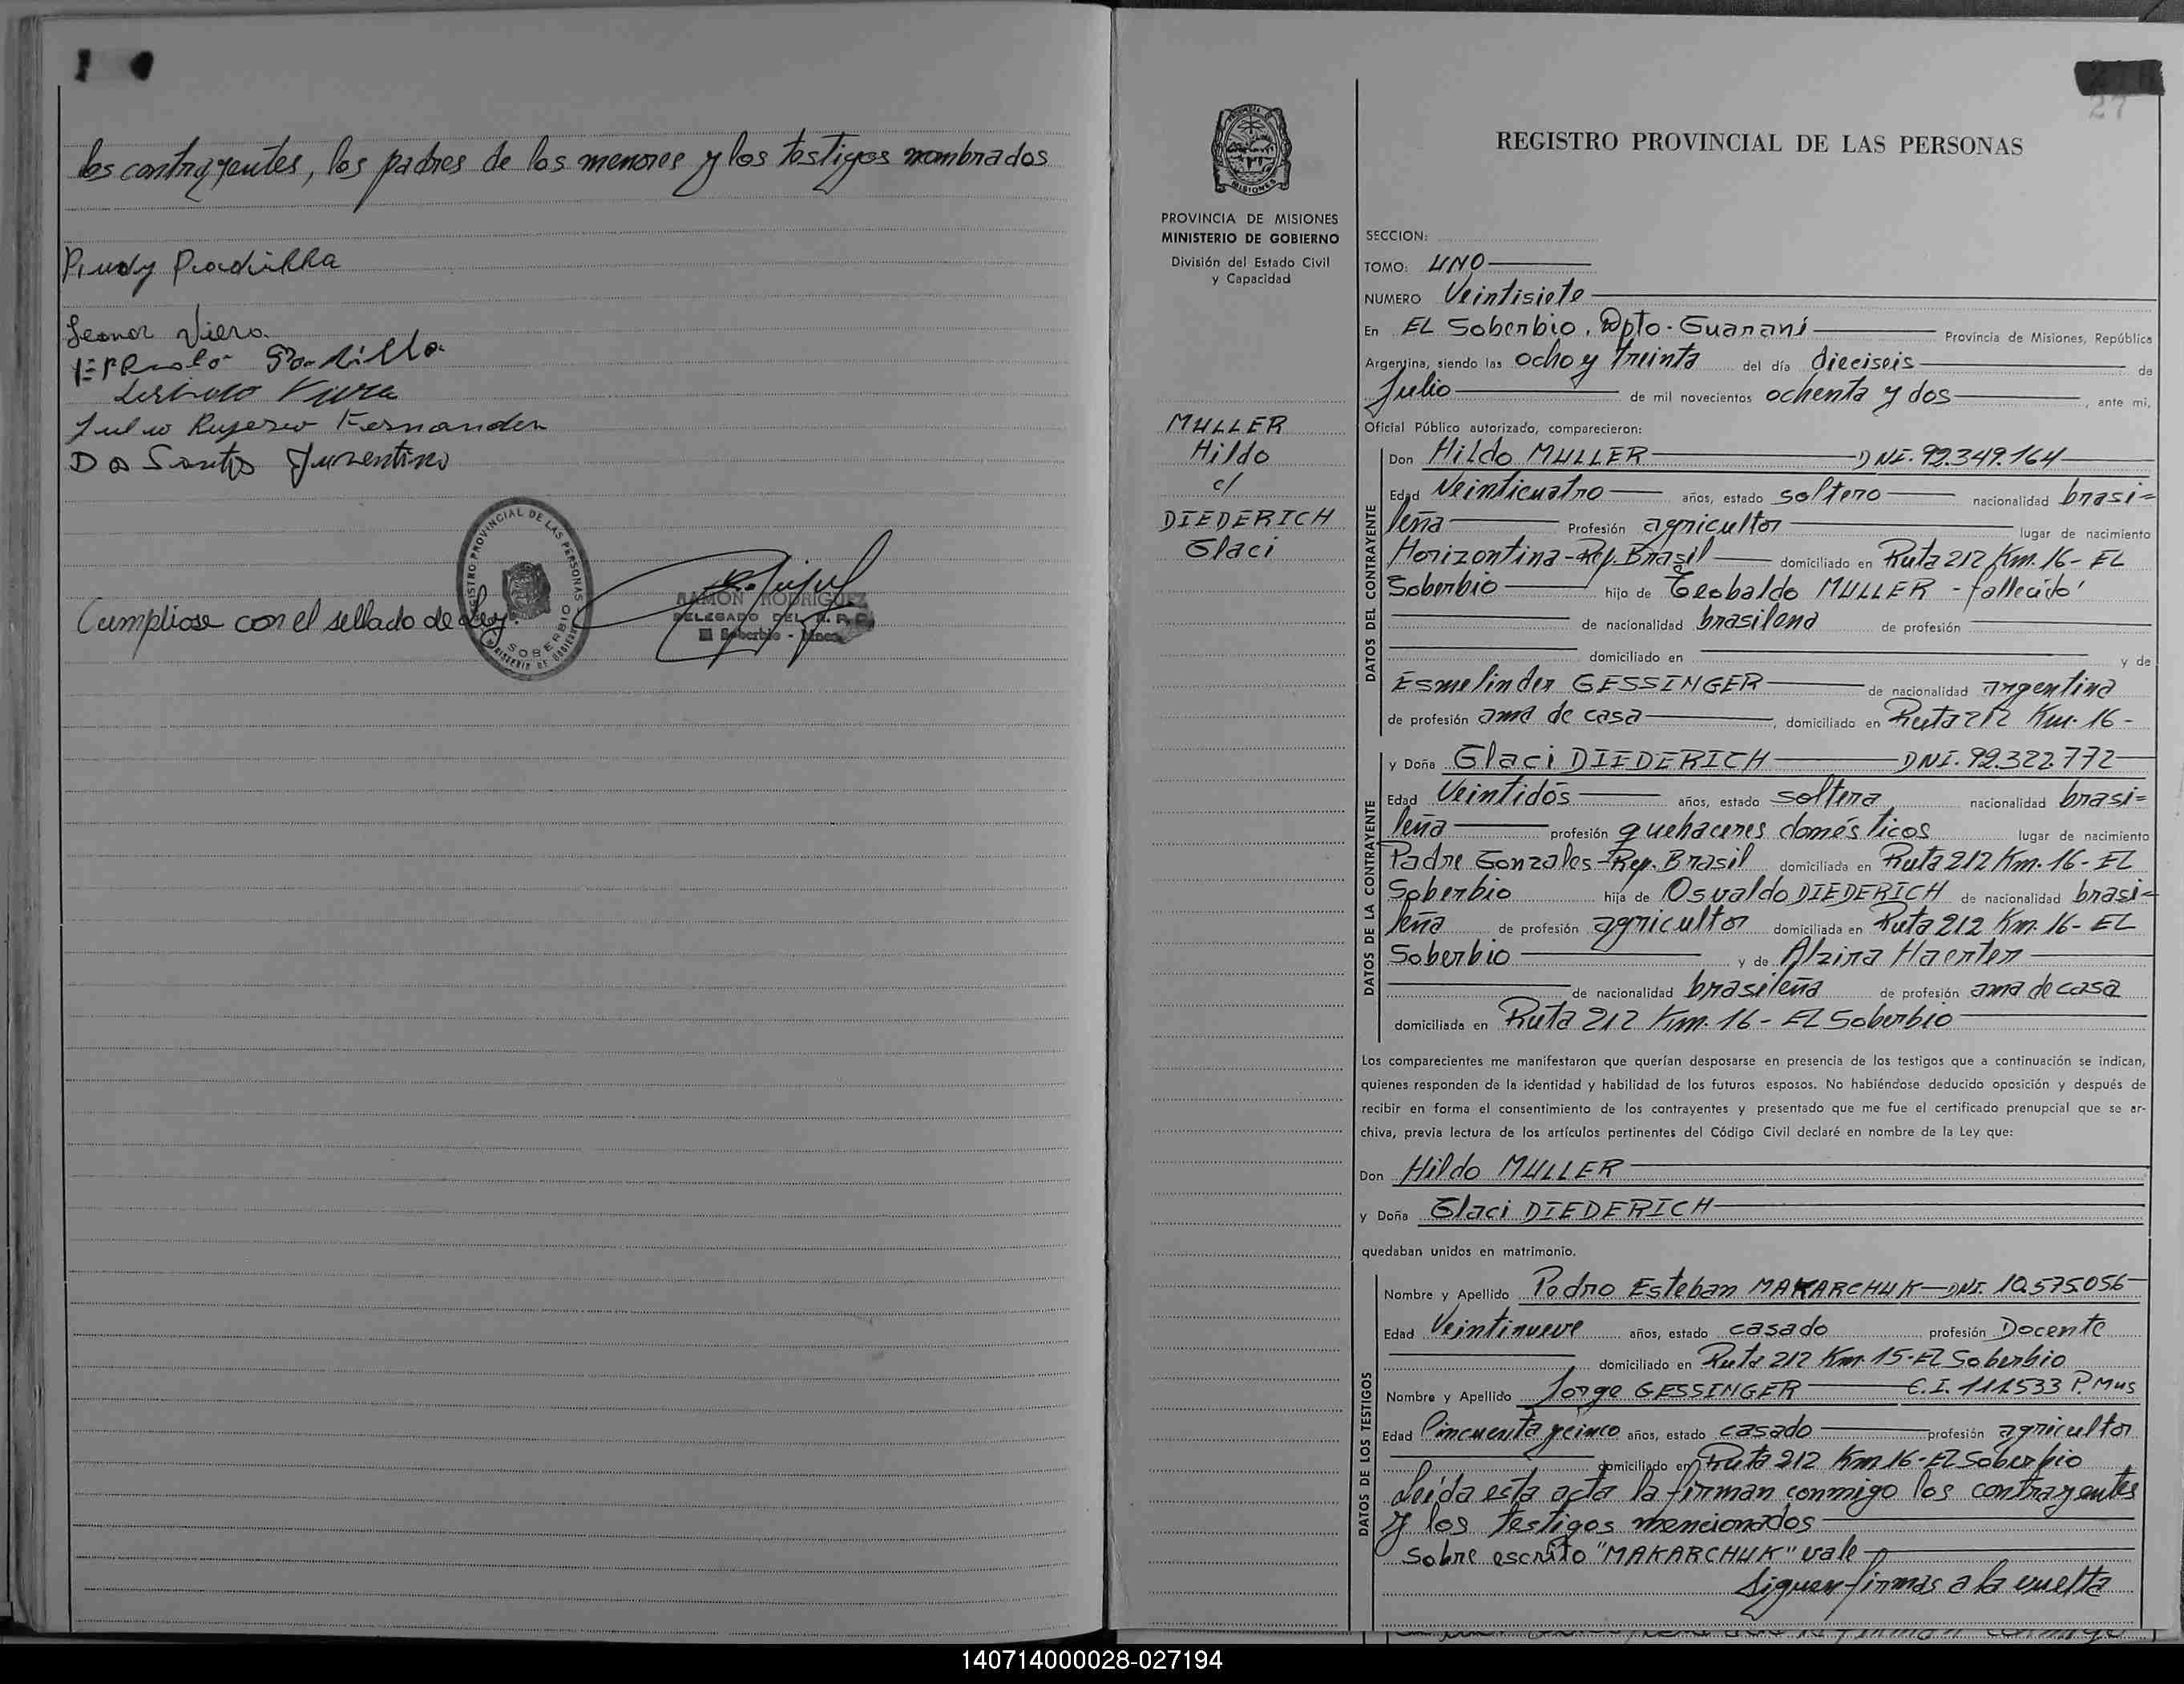 los contrayentes, los padres de los menores y los testigos nombrados
Leonor Viera
Julio Rugerio Fernandez
Dos Santos Juventino
Cumpliose con el sellado de Ley.
REGISTRO PROVINCIAL DE LAS PERSONAS
SOBERBIO
MINISTERIO DE GOBIERNO
RAMON RODRIGUEZ
DELEGADO DEL R. P. P.
El Soberbio - Mnes
27
PROVINCIA DE MISIONES
MINISTERIO DE GOBIERNO
División del Estado Civil
y Capacidad
MULLER
Hildo
c/
DIEDERICH
Glaci
REGISTRO PROVINCIAL DE LAS PERSONAS
SECCION:
TOMO: UNO
NUMERO Veintisiete
En EL Soberbio. Dpto. Guaraní Provincia de Misiones, República
Argentina, siendo las ocho y treinta del día dieciseis de
Julio de mil novecientos ochenta y dos, ante mi,
Oficial Público autorizado, comparecieron:
DATOS DEL CONTRAYENTE
Don Hildo MULLER DNI. 92.349.164
Edad Veinticuatro años, estado soltero nacionalidad brasi=
leña Profesión agricultor lugar de nacimiento
Horizontina-Rep. Brasil domiciliado en Ruta 212 Km. 16- EL
Soberbio hijo de Teobaldo MULLER - fallecido
de nacionalidad brasilena de profesión
domiciliado en y de
Esmelinder GESSINGER de nacionalidad argentina
de profesión ama de casa, domiciliado en Ruta 212 Km. 16-
DATOS DE LA CONTRAYENTE
y Doña Glaci DIEDERICH DNI. 92.322.772
Edad Veintidós años, estado soltera nacionalidad brasi=
leña profesión quehaceres domésticos lugar de nacimiento
Padre Gonzales-Rep. Brasil domiciliada en Ruta 212 Km. 16- EL
Soberbio hija de Osvaldo DIEDERICH de nacionalidad brasi=
leña de profesión agricultor domiciliada en Ruta 212 Km. 16- EL
Soberbio y de Alzira Haerter
de nacionalidad brasileña de profesión ama de casa
domiciliada en Ruta 212 Km. 16 - EL Soberbio
Los comparecientes me manifestaron que querían desposarse en presencia de los testigos que a continuación se indican,
quienes responden de la identidad y habilidad de los futuros esposos. No habiéndose deducido oposición y después de
recibir en forma el consentimiento de los contrayentes y presentado que me fue el certificado prenupcial que se ar-
chiva, previa lectura de los artículos pertinentes del Código Civil declaré en nombre de la Ley que:
Don Hildo MULLER
y Doña Glaci DIEDERICH
quedaban unidos en matrimonio.
DATOS DE LOS TESTIGOS
Nombre y Apellido Pedro Esteban MAKARCHUK DNI. 10.575.056
Edad Veintinueve años, estado casado profesión Docente
domiciliado en Ruta 212 Km. 15- EL Soberbio
Nombre y Apellido Jorge GESSINGER C.I. 111.533 P. Mns
Edad Cincuenta y cinco años, estado casado profesión agricultor
domiciliado en Ruta 212 Km 16- EL Soberbio
Leída esta acta la firman conmigo los contrayentes
y los testigos mencionados
Sobre escrito "MAKARCHUK" vale
Siguen firmas a la vuelta
140714000028-027194